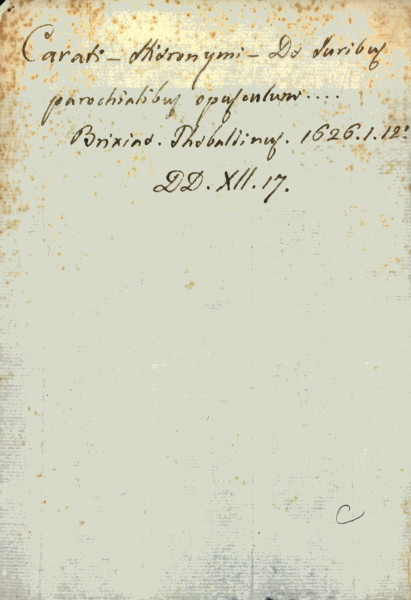 Carati - Hieronymi - De Juribus
parochialibus opusculum....
Brixiae. Thebaldinus. 1626. 1. 12°
DD. XII. 17.
C